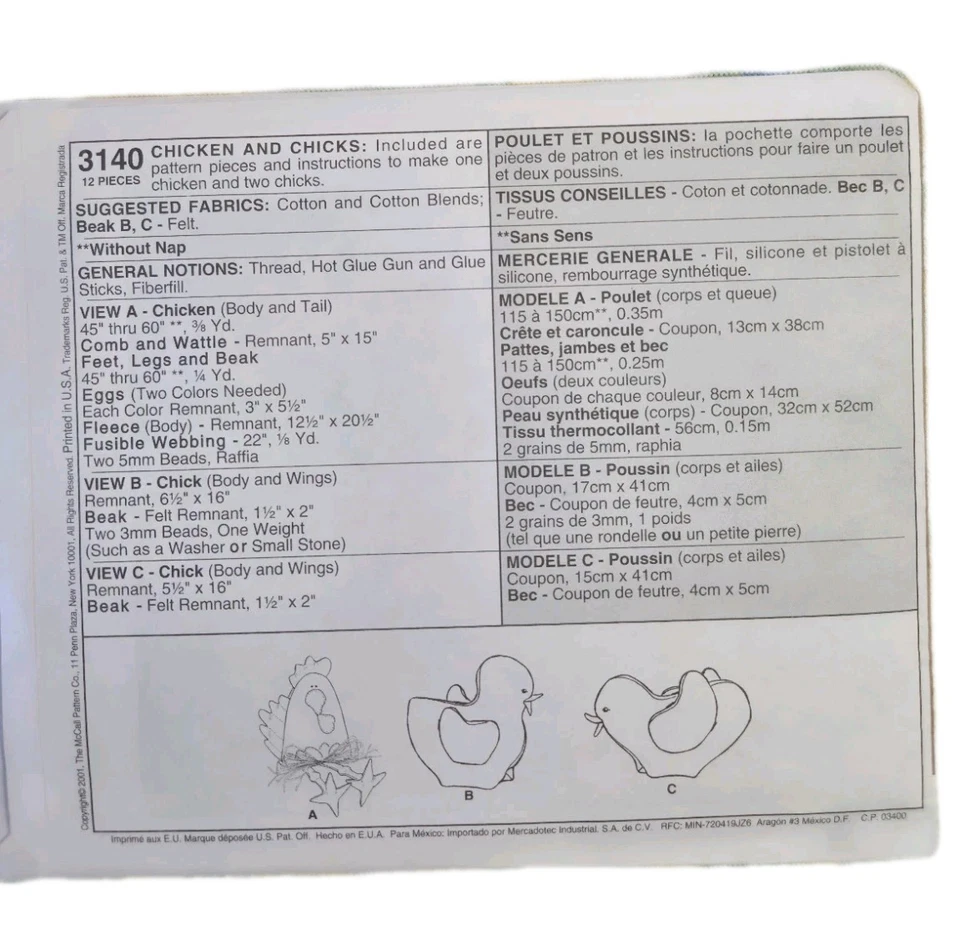 3140
12 PIECES
CHICKEN AND CHICKS: Included are
pattern pieces and instructions to make one
chicken and two chicks.
SUGGESTED FABRICS: Cotton and Cotton Blends;
Beak B, C - Felt.
**Without Nap
GENERAL NOTIONS: Thread, Hot Glue Gun and Glue
Sticks, Fiberfill.
VIEW A - Chicken (Body and Tail)
45" thru 60" **, ⅜ Yd.
Comb and Wattle - Remnant, 5" x 15"
Feet, Legs and Beak
45" thru 60" **, ¼ Yd.
Eggs (Two Colors Needed)
Each Color Remnant, 3" x 5½"
Fleece (Body) - Remnant, 12½" x 20½"
Fusible Webbing - 22", ⅛ Yd.
Two 5mm Beads, Raffia
VIEW B - Chick (Body and Wings)
Remnant, 6½" x 16"
Beak - Felt Remnant, 1½" x 2"
Two 3mm Beads, One Weight
(Such as a Washer or Small Stone)
VIEW C - Chick (Body and Wings)
Remnant, 5½" x 16"
Beak - Felt Remnant, 1½" x 2"
POULET ET POUSSINS: la pochette comporte les
pièces de patron et les instructions pour faire un poulet
et deux poussins.
TISSUS CONSEILLES - Coton et cotonnade. Bec B, C
- Feutre.
**Sans Sens
MERCERIE GENERALE - Fil, silicone et pistolet à
silicone, rembourrage synthétique.
MODELE A - Poulet (corps et queue)
115 à 150cm**, 0.35m
Crête et caroncule - Coupon, 13cm x 38cm
Pattes, jambes et bec
115 à 150cm**, 0.25m
Oeufs (deux couleurs)
Coupon de chaque couleur, 8cm x 14cm
Peau synthétique (corps) - Coupon, 32cm x 52cm
Tissu thermocollant - 56cm, 0.15m
2 grains de 5mm, raphia
MODELE B - Poussin (corps et ailes)
Coupon, 17cm x 41cm
Bec - Coupon de feutre, 4cm x 5cm
2 grains de 3mm, 1 poids
(tel que une rondelle ou un petite pierre)
MODELE C - Poussin (corps et ailes)
Coupon, 15cm x 41cm
Bec - Coupon de feutre, 4cm x 5cm
A
B
C
Imprimé aux E.U. Marque déposée U.S. Pat. Off. Hecho en E.U.A. Para México: Importado por Mercadotec Industrial. S.A. de C.V. RFC: MIN-720419JZ6 Aragón #3 México D.F. C.P. 03400
Copyright© 2001, The McCall Pattern Co., 11 Penn Plaza, New York 10001, All Rights Reserved. Printed in U.S.A. Trademarks Reg. U.S. Pat. & TM Off. Marca Registrada